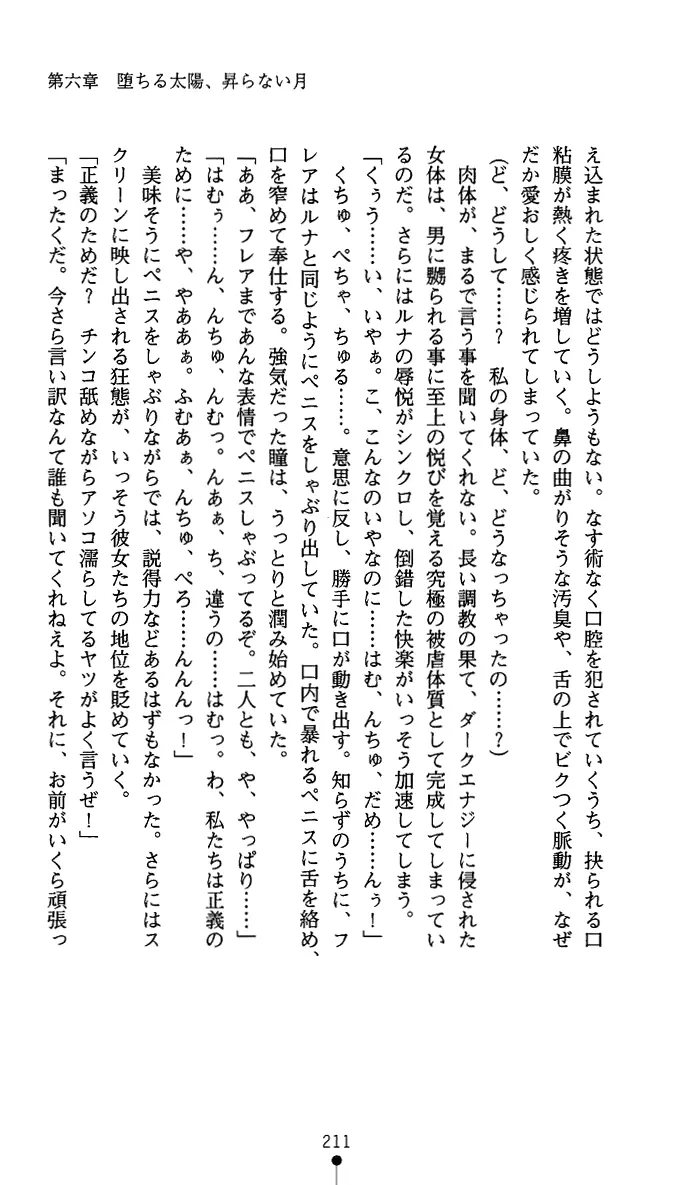 第六章　堕ちる太陽、昇らない月
え込まれた状態ではどうしようもない。なす術なく口腔を犯されていくうち、抉られる口
粘膜が熱く疼きを増していく。鼻の曲がりそうな汚臭や、舌の上でビクつく脈動が、なぜ
だか愛おしく感じられてしまっていた。
（ど、どうして……？　私の身体、ど、どうなっちゃったの……？）
肉体が、まるで言う事を聞いてくれない。長い調教の果て、ダークエナジーに侵された
女体は、男に嬲られる事に至上の悦びを覚える究極の被虐体質として完成してしまってい
るのだ。さらにはルナの辱悦がシンクロし、倒錯した快楽がいっそう加速してしまう。
「くぅう……い、いやぁ。こ、こんなのいやなのに……はむ、んちゅ、だめ……んぅ！」
くちゅ、ぺちゃ、ちゅる……。意思に反し、勝手に口が動き出す。知らずのうちに、フ
レアはルナと同じようにペニスをしゃぶり出していた。口内で暴れるペニスに舌を絡め、
口を窄めて奉仕する。強気だった瞳は、うっとりと潤み始めていた。
「ああ、フレアまであんな表情でペニスしゃぶってるぞ。二人とも、や、やっぱり……」
「はむぅ……ん、んちゅ、んむっ。んあぁ、ち、違うの……はむっ。わ、私たちは正義の
ために……や、やああぁ。ふむあぁ、んちゅ、ぺろ……んんんっ！」
美味そうにペニスをしゃぶりながらでは、説得力などあるはずもなかった。さらにはス
クリーンに映し出される狂態が、いっそう彼女たちの地位を貶めていく。
「正義のためだ？　チンコ舐めながらアソコ濡らしてるヤツがよく言うぜ！」
「まったくだ。今さら言い訳なんて誰も聞いてくれねえよ。それに、お前がいくら頑張っ
211